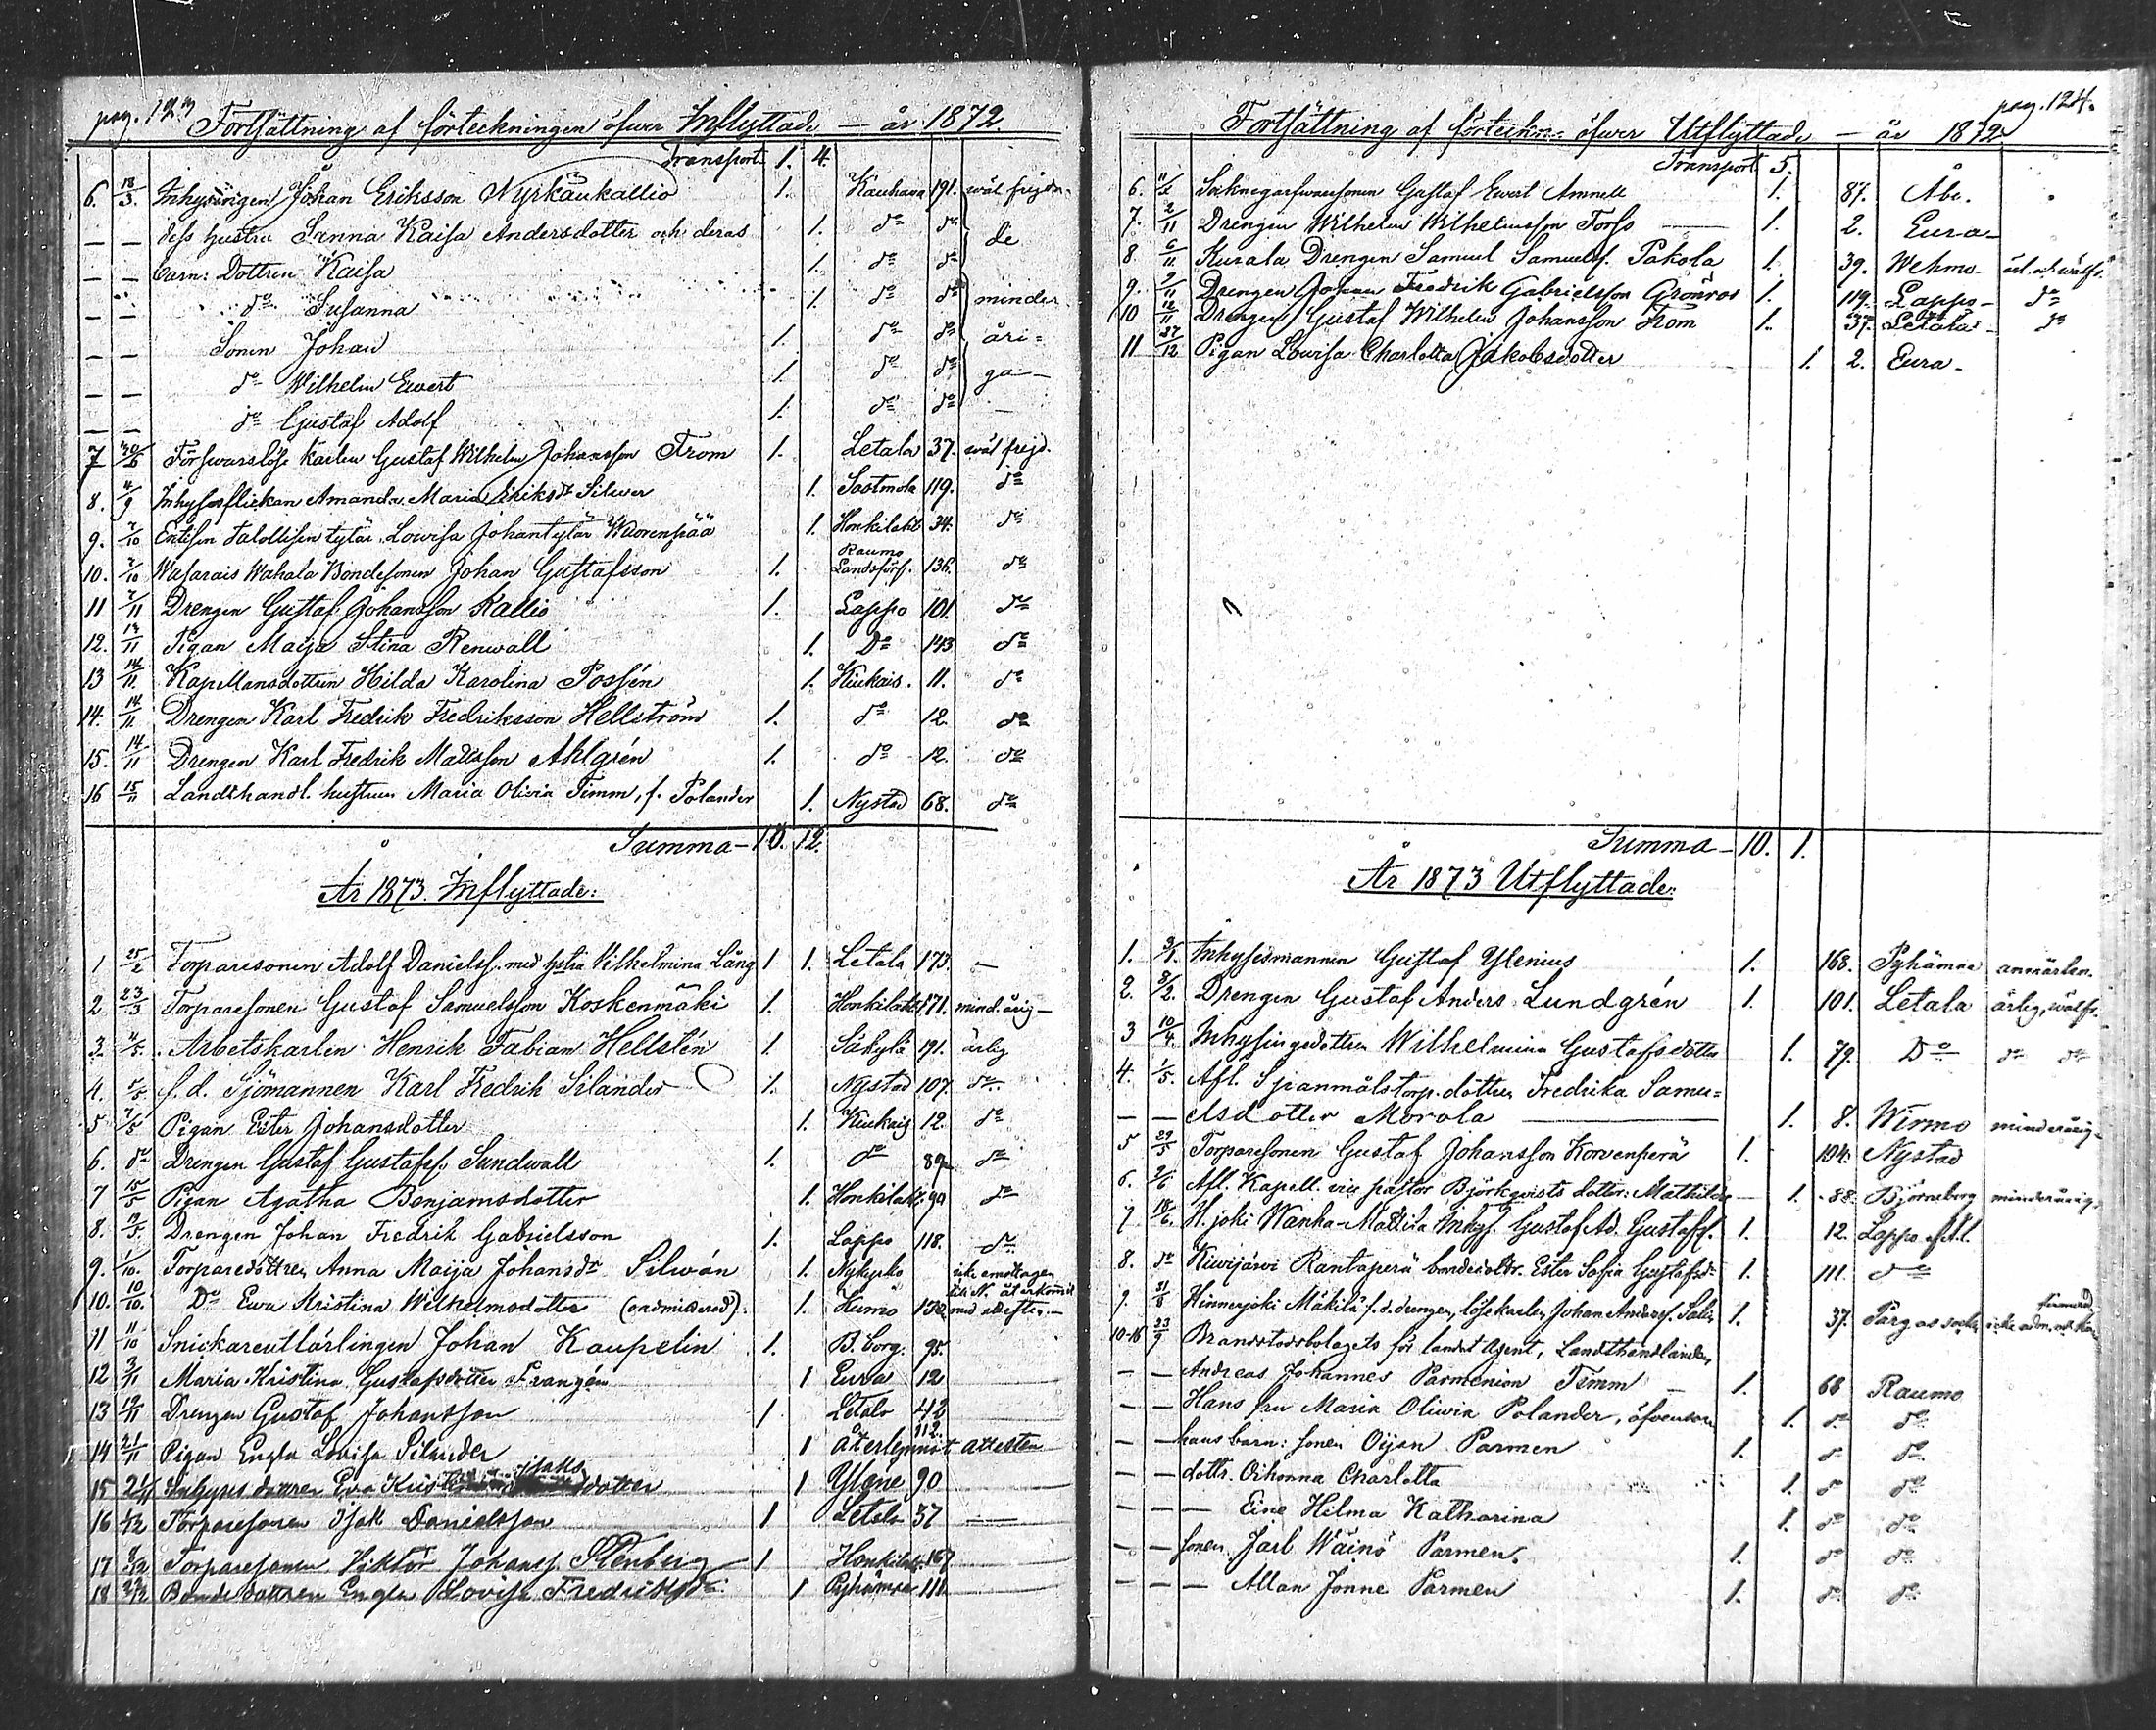 pag. 123
Fortsättning af förteckningen öfwer Inflyttade — år 1872.
Transport 1. 4.
6. 18/3 Inhysingen Johan Eriksson Nyrkäukallio 1. Kauhava 191. wäl frejd.
— — dess hustru Sanna Kaisa Andersdotter och deras 1. do do de
— — barn: Dottren Kaisa 1. do do
— — do Susanna 1. do do minder
— — Sonen Johan 1. do do åri=
— — do Wilhelm Ewert 1. do do ga —
— — do Gustaf Adolf 1. do do —
7 Förswarslöse karlen Gustaf Wilhelm Johansson From 1. Letala 37. wäl frejd.
8. 4/9 Inhysesflickan Amanda Maria Eriksdr Silwer 1. Sastmola 119. do
9. 7/10 Entisen talollisen tytär Lowisa Johantytär Waorenpää 1. Honkilaht 34. do
10. 7/10 Wasarais Wahala Bondesonen Johan Gustafsson 1. Raumo Landsförs. 136. do
11 7/11 Drengen Gustaf Johansson Kallio 1. Lappo 101. do
12. 13/11 Pigan Maija Stina Renwall 1. Do 143 do
13 14/11 Kapellansdottren Hilda Karolina Possén 1. Kiukais. 11. do
14. 14/11 Drengen Karl Fredrik Fredriksson Hellström 1. do 12. do
15. 14/11 Drengen Karl Fredrik Mattsson Ahlgrén 1. do 12. do
16 15/11 Landthandl. hustrun Maria Olivia Timm, f. Polander 1. Nystad 68. do
Summa — 10. 12.
År 1873. Inflyttade:
1 25/2 Torparesonen Adolf Danielss. med hstru Vilhelmina Lång 1 1. Letala 173. —
2 23/3 Torparesonen Gustaf Samuelsson Koskenmäki 1. Honkilaht 171. mind. årig —
3. 4/5 Arbetskarlen Henrik Fabian Hellstén 1. Säkylä 191. ärlig
4. 5/5 f. d. Sjömannen Karl Fredrik Silander 1. Nystad 107. do
5 7/5 Pigan Ester Johansdotter 1. Kiukais 12. do
6. do Drengen Gustaf Gustafss. Sundwall 1. do 89. do
7 15/5 Pigan Agatha Benjamsdotter 1. Honkilaht. 90 do
8. 9/5. Drengen Johan Fredrik Gabrielsson 1. Lappo 118. do
9. 1/10. Torparedottren Anna Maija Johansdr Silwán 1. Nykyrko icke emottagen
10. 10/10. Do Ewa Kristina Wilhelmsdotter (oadmitterad). 1. Humo
11 11/10 Snickareutlärlingen Johan Kaupelin 1. B. borg. 95.
12 3/11 Maria Kristina Gustafsdotter Frangén 1 Eura 12
13 19/11 Drengen Gustaf Johansson 1 Letala 42
14 21/11 Pigan Engla Lovisa Silander 1 återlemnat attesten 112.
15 Inhyses dottren Eva Kristina dotter 1 Yläne 90
16 1/12 Torparesonen Isak Danielsson 1 Letala 37
17 Torparesonen Viktor Johanss. Stenberg 1 Honkilaht. 167
18 Bondedottren Engla Lovisa Fredriksdr 1 Pyhämaa 111.
pag. 124.
Fortsättning af förteckn. öfwer Utflyttade — år 1872
Transport 5.
6. Gustaf Ewert Amnell 1. 87. Åbo.
7. 2/11 Drengen Wilhelm Wilhelmsson Forss — 1. 2. Eura —
8. 6/11 Kurala Drengen Samuel Samuelss. Pakola 1. 39. Wehmo ärl. och wälfr.
9. 9/11 Drengen Johan Fredrik Gabrielsson Grönros 1. 119. Lappo — do
10 12/11 Drengen Gustaf Wilhelm Johansson From 1. 37. Letala — do
11 27/12 Pigan Lowisa Charlotta Jakobsdotter 1. 2. Eura —
Summa — 10. 1.
År 1873 Utflyttade:
1. 3/1. Inhysesmannen Gustaf Ylenius 1. 168. Pyhämaa anmärkn.
2. 8/2. Drengen Gustaf Anders Lundgrén 1. 101. Letala ärlig, wälfr.
3 10/4. Inhysingsdottren Wilhelmina Gustafsdotter 1. 79. Do do do
4. 1/5. Afl. Spanmålstorp. dottren Fredrika Samu=
— — elsdotter Morola — 1. 8. Wirmo minderårig
5 29/5 Torparesonen Gustaf Johansson Korvenperä 1. 104. Nystad
6. 2/6 Afl. Kapell. vice pastor Björkqvists dotter: Mathilda — 1. 88. Björneborg minderårig
7 18/6. H.joki Wanka-Mattila Inhys. Gustaf Ad. Gustafss. 1. 12. Lappo
8. do Kiwijärwi Rantaperä bondedottr. Ester Sofia Gustafsdr 1. 111. do
9. 31/8 Hinnerjoki Mäkilä f. d. drengen, lösekarlen Johan Anderss. Salin 1. 37. Pargas
10-16 23/9 Brandstodsbolagets för landet Agent, Landthandlanden
— — Andreas Johannes Parmenion Timm — 1. 68 Raumo
— — Hans fru Maria Oliwia Polander, äfvensom 1. do do
— — hans barn: sonen Oijan Parmen 1. do do
— — dottr. Oihonna Charlotta 1. do do
— — — Eine Hilma Katharina 1. do do
— — sonen Jarl Wäinö Parmen. 1. do do
— — — Allan Jonne Parmen 1. do do